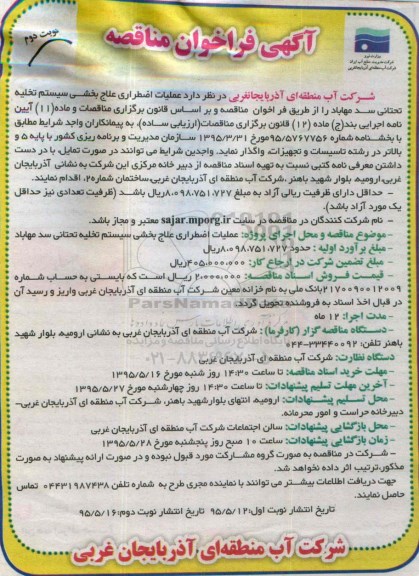 آگهی فراخوان مناقصه
نوبت دوم
شرکت آب منطقه‌ای آذربایجانغربی در نظر دارد عملیات اضطراری علاج بخشی سیستم تخلیه
تحتانی سد مهاباد را از طریق فراخوان مناقصه و بر اساس قانون برگزاری مناقصات و ماده(۱۱) آیین
نامه اجرایی بند(ج) ماده (۱۲) قانون برگزاری مناقصات(ارزیابی ساده)، به پیمانکاران واجد شرایط مطابق
با بخشنامه شماره ۹۵/۵۷۶۷۷۵۶مورخ ۱۳۹۵/۳/۳۱ سازمان مدیریت و برنامه ریزی کشور با پایه ۵ و
بالاتر در رشته تاسیسات و تجهیزات، واگذار نماید. واجدین شرایط می توانند در صورت تمایل، با در دست
داشتن معرفی نامه کتبی نسبت به تهیه اسناد مناقصه از دبیر خانه مرکزی این شرکت به نشانی آذربایجان
غربی، ارومیه، بلوار شهید باهنر، شرکت آب منطقه ای آذربایجان غربی،ساختمان شماره۲، اقدام نمایند.
- حداقل دارای ظرفیت ریالی آزاد به مبلغ ۸،۰۹۸،۷۵۱،۷۲۷ریال باشد (ظرفیت تعدادی نیز حداقل
یک مورد آزاد باشد).
- نام شرکت کنندگان در مناقصه در سایت sajar.mporg.ir معتبر و مجاز باشد.
- موضوع مناقصه و محل اجرای پروژه: عملیات اضطراری علاج بخشی سیستم تخلیه تحتانی سد مهاباد
- مبلغ برآورد اولیه : حدود ۸،۰۹۸،۷۵۱،۷۲۷ریال
- مبلغ تضمین شرکت در ارجاع کار: ۴۰۵،۰۰۰،۰۰۰ریال
- قیمت فروش اسناد مناقصه: ۲،۰۰۰،۰۰۰ ریال است که بایستی به حساب شماره
۲۱۷۰۰۹۰۰۱۲۰۰۹بانک ملی به نام خزانه معین شرکت آب منطقه ای آذربایجان غربی واریز و رسید آن
در قبال اخذ اسناد به فروشنده تحویل گردد.
- مدت اجرا: ۱۲ ماه
- دستگاه مناقصه گزار (کارفرما) : شرکت آب منطقه ای آذربایجان غربی به نشانی ارومیه، بلوار شهید
باهنر تلفن: ۳۳۴۴۰۰۹۲-۰۴۴
دستگاه نظارت: شرکت آب منطقه ای آذربایجان غربی
- مهلت خرید اسناد مناقصه: تا ساعت ۱۴:۳۰ روز شنبه مورخ ۱۳۹۵/۵/۱۶
- آخرین مهلت تسلیم پیشنهادات: تا ساعت ۱۴:۳۰ روز چهارشنبه مورخ ۱۳۹۵/۵/۲۷
- محل تسلیم پیشنهادات: ارومیه، انتهای بلوارشهید باهنر، شرکت آب منطقه ای آذربایجان غربی-
دبیرخانه حراست و امور محرمانه.
- محل بازگشایی پیشنهادات: سالن اجتماعات شرکت آب منطقه ای آذربایجان غربی
- زمان بازگشایی پیشنهادات: ساعت ۱۰ صبح روز پنجشنبه مورخ ۱۳۹۵/۵/۲۸
- شرکت در مناقصه به صورت گروه مشارکت مورد قبول نبوده و در صورت ارائه پیشنهاد به صورت
مذکور،ترتیب اثر داده نخواهد شد.
جهت دریافت اطلاعات بیشتر می توانند با نماینده مجری طرح به شماره تلفن ۰۴۴۳۱۹۸۷۴۳۸ تماس
حاصل نمایند.
تاریخ انتشار نوبت اول:۹۵/۵/۱۲ تاریخ انتشار نوبت دوم:۹۵/۵/۱۶
شرکت آب منطقه‌ای آذربایجان غربی